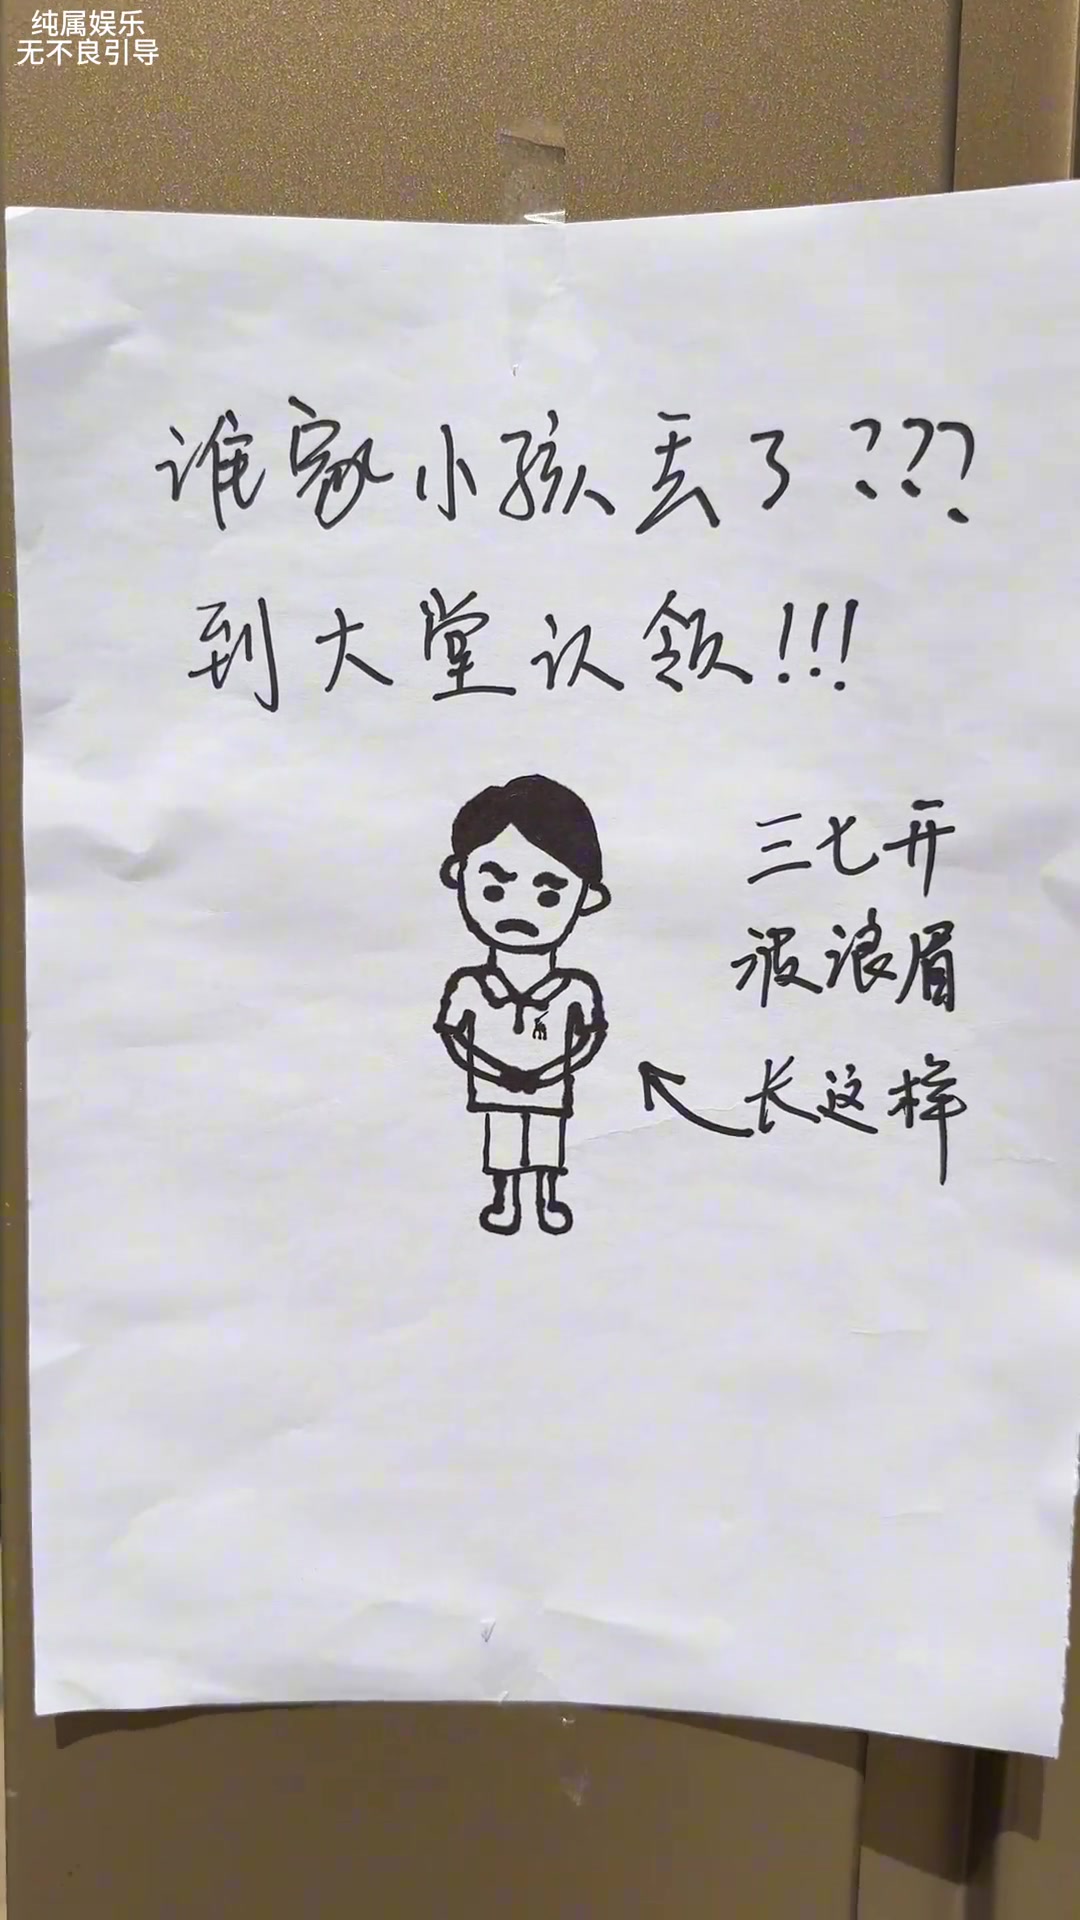 纯属娱乐
无不良引导
谁家小孩丢了???
到大堂认领!!!
三七开
波浪眉
长这样